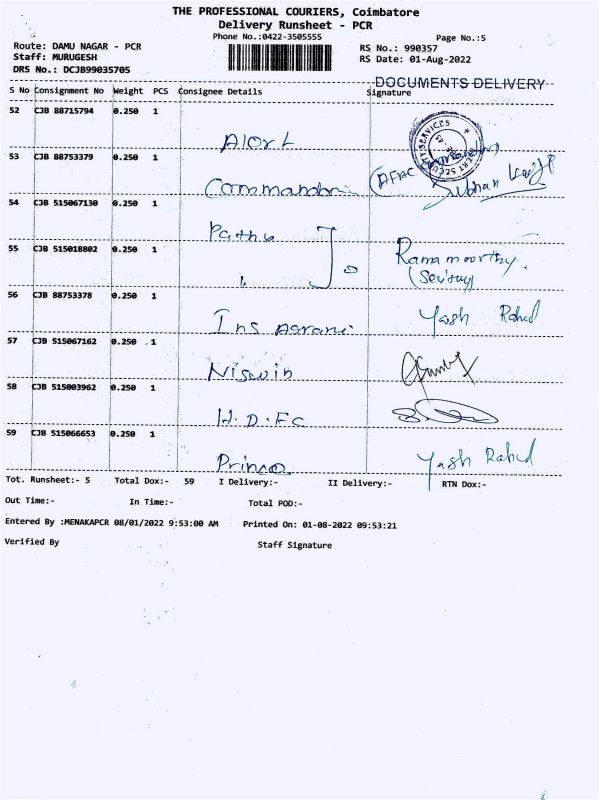 THE PROFESSIONAL COURIERS, Coimbatore
Delivery Runsheet - PCR
Phone No.:0422-3505555
Page No.:5
Route: DAMU NAGAR - PCR
RS No.: 990357
Staff: MURUGESH
RS Date: 01-Aug-2022
DRS No.: DCJB99035705
DOCUMENTS DELIVERY
S No Consignment No Weight PCS Consignee Details Signature
52 CJB 88715794 0.250 1
Alort
53 CJB 88753379 0.250 1
Commandon
54 CJB 515067130 0.250 1
Pathy
55 CJB 515018802 0.250 1
Ramamoorthy
56 CJB 88753378 0.250 1
Ins Agrani Yash Rahul
57 CJB 515067162 0.250 1
Niswin
58 CJB 515003962 0.250 1
H.D.FC
59 CJB 515066653 0.250 1
Prince Yash Rahul
Tot. Runsheet:- 5 Total Dox:- 59 I Delivery:- II Delivery:- RTN Dox:-
Out Time:- In Time:- Total POD:-
Entered By :MENAKAPCR 08/01/2022 9:53:00 AM Printed On: 01-08-2022 09:53:21
Verified By Staff Signature